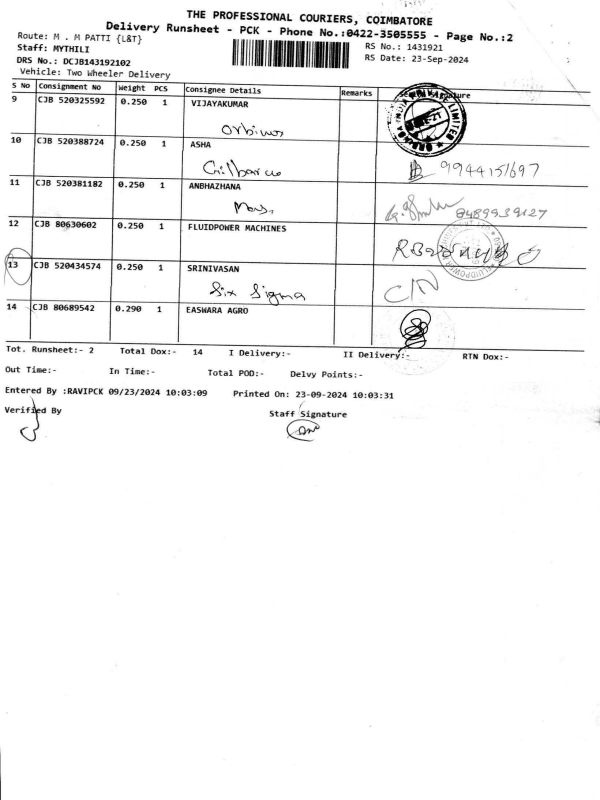 THE PROFESSIONAL COURIERS, COIMBATORE
Delivery Runsheet - PCK - Phone No.:0422-3505555 - Page No.:2
Route: M . M PATTI {L&T}
RS No.: 1431921
Staff: MYTHILI
RS Date: 23-Sep-2024
DRS No.: DCJB143192102
Vehicle: Two Wheeler Delivery
S No Consignment No Weight PCS Consignee Details Remarks
9 CJB 520325592 0.250 1 VIJAYAKUMAR
10 CJB 520388724 0.250 1 ASHA
Gilbarco 9944151697
11 CJB 520381182 0.250 1 ANBHAZHANA
8489939127
12 CJB 80630602 0.250 1 FLUIDPOWER MACHINES
13 CJB 520434574 0.250 1 SRINIVASAN
Six Sigma C/N
14 CJB 80689542 0.290 1 EASWARA AGRO
Tot. Runsheet:- 2 Total Dox:- 14 I Delivery:- II Delivery:- RTN Dox:-
Out Time:- In Time:- Total POD:- Delvy Points:-
Entered By :RAVIPCK 09/23/2024 10:03:09 Printed On: 23-09-2024 10:03:31
Verified By Staff Signature